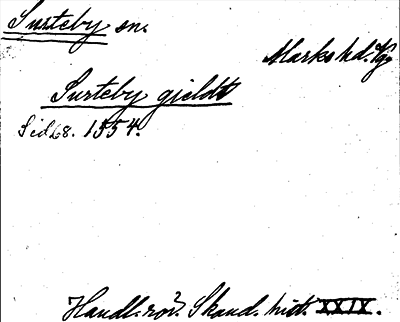 Surteby sn.
Marks hd. Vg.
Surteby gieldt
Sid 68. 1554.
Handl. rör. Skand. hist. XXIX.